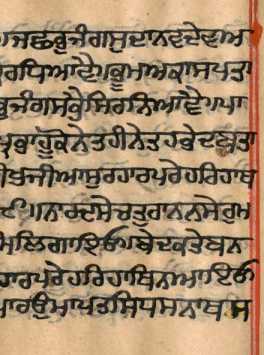 ਜਛਭੁਜੰਗਸੁਦਾਨਵਦੇਵਅ
ਰਧਿਆਵੈ॥ਭੂਮਅਕਾਸਪਤਾ
ਭੁਜੰਗਸਭੈਸਿਰਨਿਆਵੈ॥ਪਾ
ਪ੍ਰਭਾਹੂਕੋਨੇਤਹੀਨੇਤਹਬੇਦਬਤਾ
ਖੁਜੀਆਸੁਰਹਾਰਪਰੇਹਰਿਹਾਥ
॥ਨਾਰਦਸੇਚਤੁਰਾਨਨਸੇਰੁਮ
ਮਲਿਗਾਇਓ॥ਬੇਦਕਤੇਬਨ
ਹਾਰਪਰੇਹਰਿਹਾਥਿਨਆਇਓ
ਪਾਰਉਮਾਪਤਸਿਧਸਨਾਥਸ